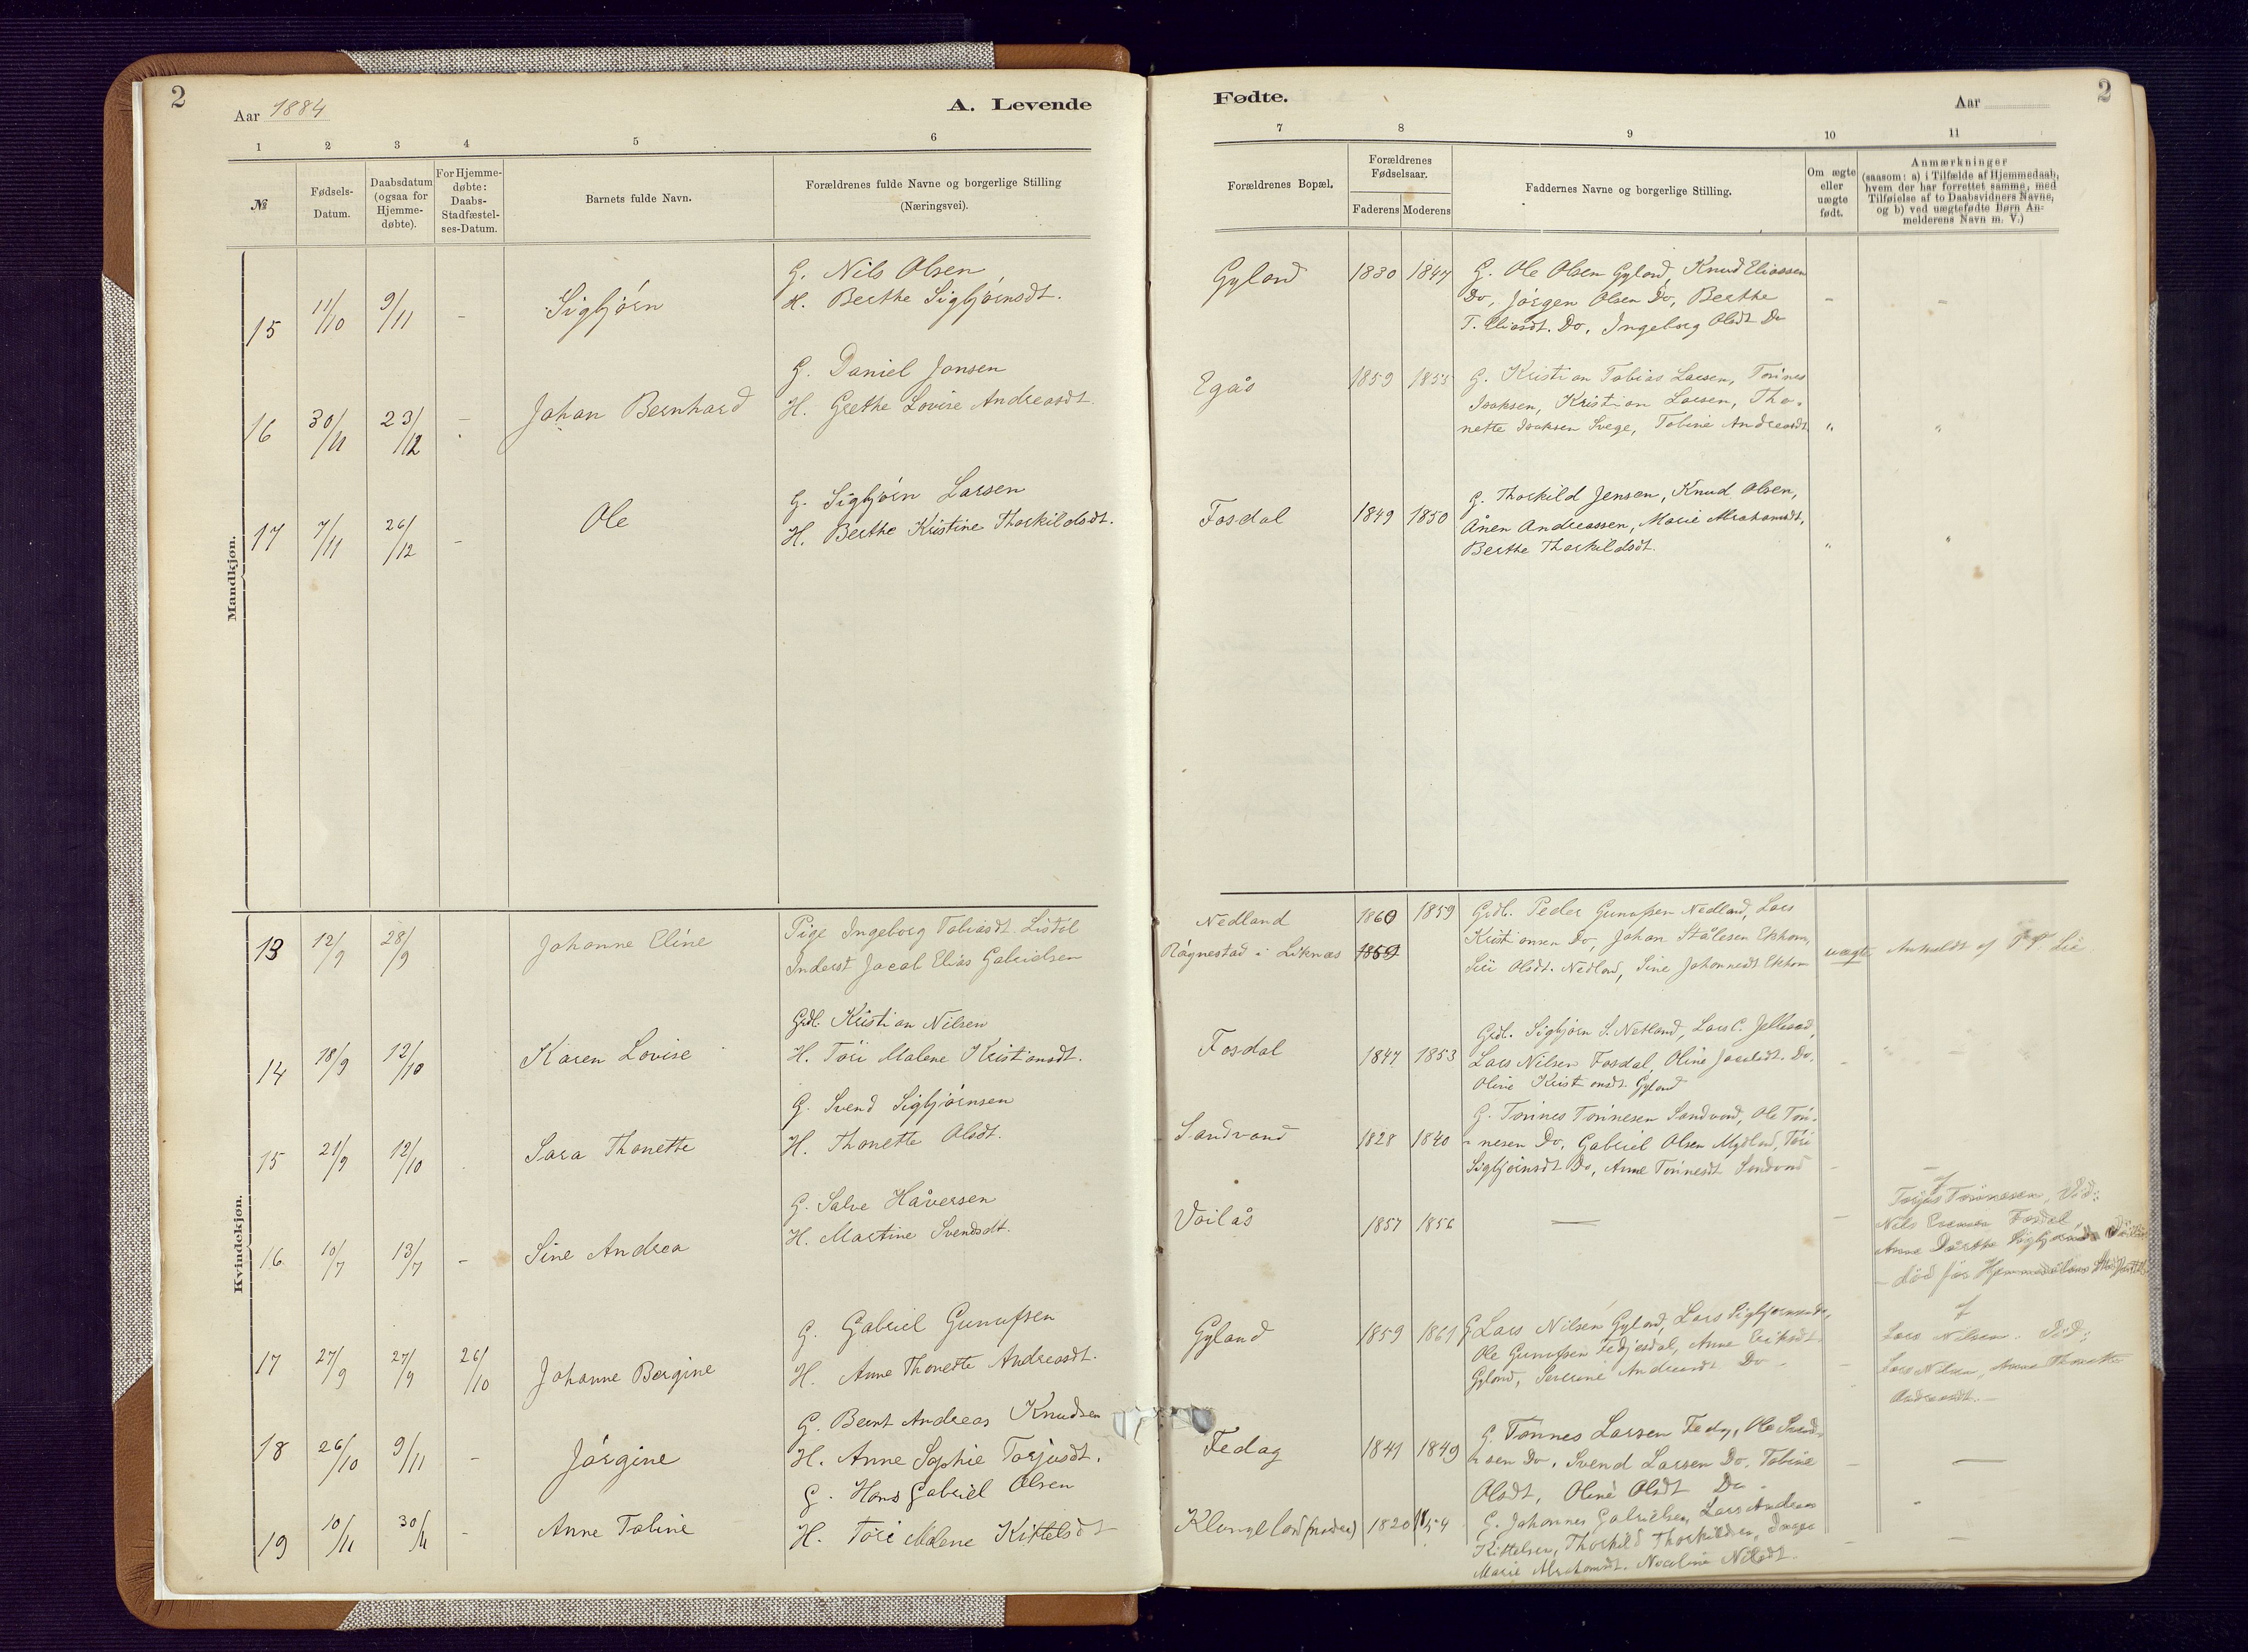 2
Aar 1884
A. Levende
1 2 3 4 5 6
№
Fødsels-
Datum.
Daabsdatum
(ogsaa for
Hjemme-
døbte).
For Hjemme-
døbte:
Daabs-
Stadfæstel-
ses-Datum.
Barnets fulde Navn.
Forældrenes fulde Navne og borgerlige Stilling
(Næringsvei).
Mandkjøn.
G. Nils Olsen
H. Berthe Sigbjørnsdt.
15 11/10 9/11 - Sigbjørn
G. Daniel Jansen
H. Grethe Lovise Andreasdt.
16 30/11 23/12 - Johan Bernhard
G. Sigbjørn Larsen
H. Berthe Kristine Thorkildsdt.
17 7/11 26/12 - Ole
Kvindekjøn.
Pige Ingeborg Tobiasdt.
Inderst Jacob Elias Gabrielsen
13 12/9 28/9 Johanne Eline
Grdl. Kristian Nilsen
H. Tori Malene Kristiansdt.
14 18/9 12/10 Karen Lovise
G. Svend Sigbjørnsen
H. Thonette Olsdt.
15 21/9 12/10 Sara Thonette
G. Salve Håversen
H. Martine Svendsdt.
16 10/7 13/7 - Sine Andrea
G. Gabriel Gunufsen
H. Anne Thonette Andreasdt.
17 27/9 27/9 26/10 Johanne Bergine
G. Bernt Andreas Knudsen
H. Anne Sophie Torjusdt.
18 26/10 9/11 - Jørgine
G. Hans Gabriel Olsen
H. Tori Malene Kittelsdt
19 10/11 30/11 - Anne Tobine
Fødte.
Aar
2
7 8 9 10 11
Forældrenes Bopæl.
Forældrenes
Fødselsaar.
Faderens Moderens
Faddernes Navne og borgerlige Stilling.
Om ægte
eller
uægte
født.
Anmærkninger
(saasom: a) i Tilfælde af Hjemmedaab,
hvem der har forrettet samme, med
Tilføielse af to Daabsvidners Navne,
og b) ved uægtefødte Børn An-
melderens Navn m. V.)
Gyland 1830 1847 G. Ole Olsen Gyland, Knud Eliassen
Do, Jørgen Olsen Do, Berthe
T. Eliasdt. Do, Ingeborg Olsdt Do
Egås 1859 1855 G. Kristian Tobias Larsen, Tønnes
Isaksen, Kristian Larsen, Tho-
nette Isaksen Svege, Tobine Andreasdt.
Fosdal 1849 1850 G. Thorkild Jensen, Knud Olsen,
Ånen Andreassen, Marie Abrahamsdt,
Berthe Thorkildsdt.
Nedland 1860 1859 Grdl. Peder Gunufsen Nedland, Lars
Rågnestad i Liknas 1860 Kristiansen Do, Johan Stålesen
Siri Olsdt. Nedland, Sine Johannesdt uægte Anmeldt af Lie
Fosdal 1847 1853 Grdl. Sigbjørn S. Netland, Lars C.
Lars Nilsen Fosdal, Oline Jacobsdt. Do.
Oline Kristiansdt. Gyland
Sandvand 1828 1840 G. Tønnes Tønnesen Sandvand, Ole Tøn-
nesen Do, Gabriel Olsen Mydland, Tori
Sigbjørnsdt Do, Anne Tønnesdt Sandvand
Voilås 1857 1856 —
af
Torjus Tønnesen, Vid:
Nils Fosdal,
Anne Dorthe
- død før
Gyland 1859 1861 G Lars Nilsen Gyland, Lars Sigbjørnsen Do,
Ole Gunufsen Fedjesdal, Anne Eriksdt
Gyland, Severine Andreasdt Do -
af
Lars Nilsen. Vid:
Lars Nilsen, Anne Thonette
Andreasdt. -
Fedag 1841 1849 G. Tønnes Larsen Fedag, Ole Svend-
sen Do, Svend Larsen Do, Tobine
Olsdt, Oline Olsdt Do -
Klungeland (nedre) 1820 1854 G. Johannes Gabrielsen, Lars Andreas
Kittelsen, Thorkild Thorkildsen,
Marie Abrahamsdt. Nilsdt.